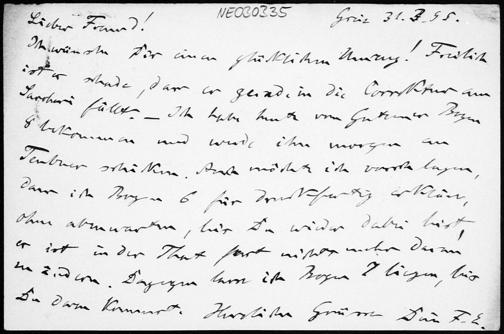 NEO30335
Greiz 31.3.95.
Lieber Freund!
Ich wünsche Dir einen glücklichen Umzug! Freilich
ist es schade, dass er gerade in die Correktur am
Saccheri fällt. – Ich habe heute von Gutenberg Bogen
8 bekommen und werde ihn morgen an
Teubner schicken. Auch möchte ich vorschlagen,
dass ich Bogen 6 für druckfertig erkläre,
ohne abzuwarten, bis Du wieder dabei bist,
es ist in der That fast nichts mehr daran
zu ändern. Dagegen lasse ich Bogen 7 liegen, bis
Du dazu kommst. Herzliche Grüsse Dein F. E.